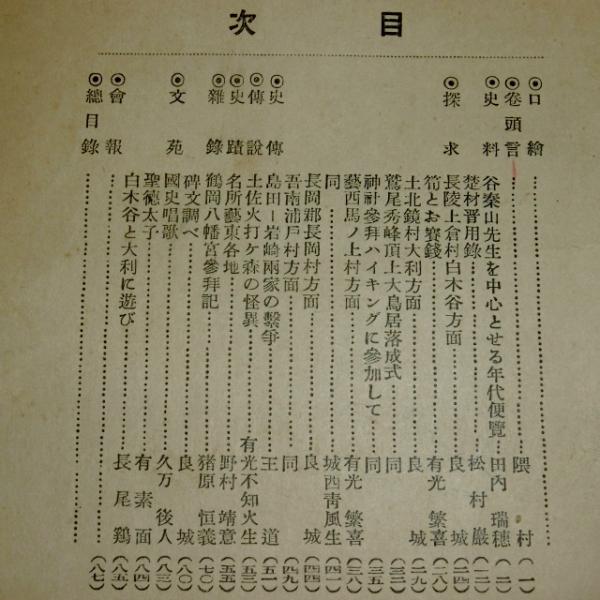 目次
◉口繪
◉卷頭言……隈村(一)
◉史料 谷秦山先生を中心とせる年代便覽……田內瑞穗(二)
楚材晋用錄……松村巖(一二)
◉探求 長陵上倉村白木谷方面……良城(二四)
筍とお賽錢……有光繁喜(二八)
土北鏡村大利方面……良城(二九)
鷲尾秀峰頂上大鳥居落成式……同(三二)
神社參拜ハイキングに參加して……同(三五)
藝西馬ノ上村方面……有光繁喜(三八)
同……城西靑風生(四一)
長岡郡長岡村方面……良城(四四)
吾南浦戶村方面……同(四九)
◉史傳 島田ー岩崎兩家の繫爭……王道(五一)
◉傳說 土佐火打ケ森の怪異……有光不知火生(五三)
◉史蹟 名所藝東各地……野村靖意(五五)
◉雜錄 鶴岡八幡宮參拜記……猪原恒義(七〇)
碑文調べ……良城(八〇)
◉文苑 國史唱歌……久万後人(八三)
聖德太子……有素面(八四)
白木谷と大利に遊び……長尾鷄(八五)
◉會報……(八七)
◉總目錄……